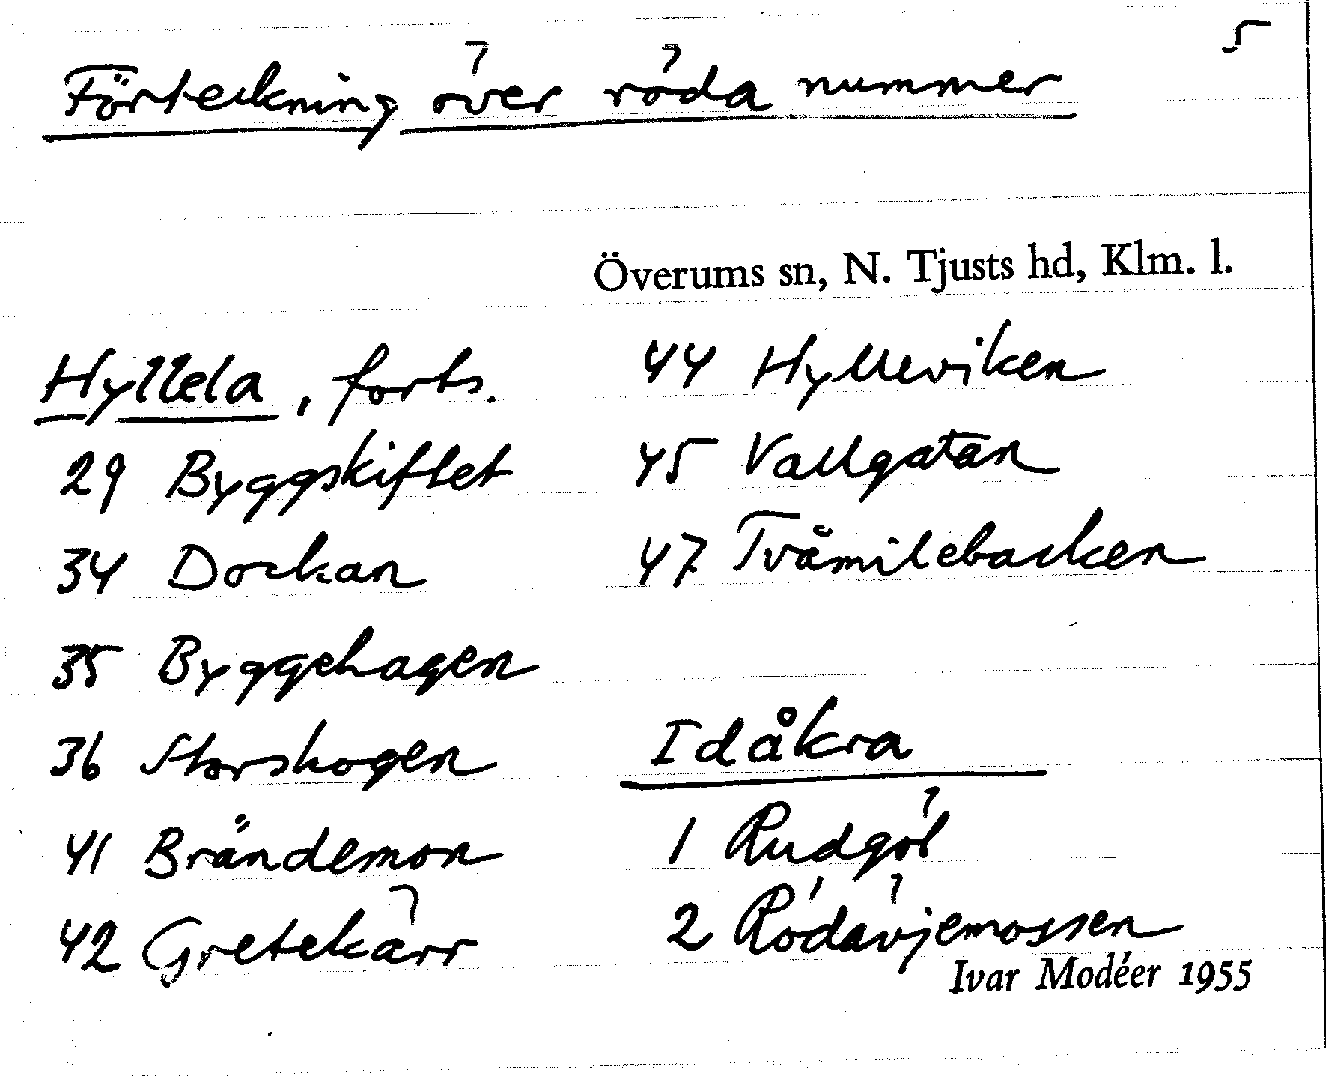 5
Förteckning över röda nummer
Överums sn, N. Tjusts hd, Klm. l.
Hyllela, forts.
29 Byggskiftet
34 Dockan
35 Byggehagen
36 Storskogen
41 Brändemon
42 Gretekärr
44 Hylleviken
45 Vallgatan
47 Tvåmilebacken
Idåkra
1 Rudgöl
2 Rödävjemossen
Ivar Modéer 1955